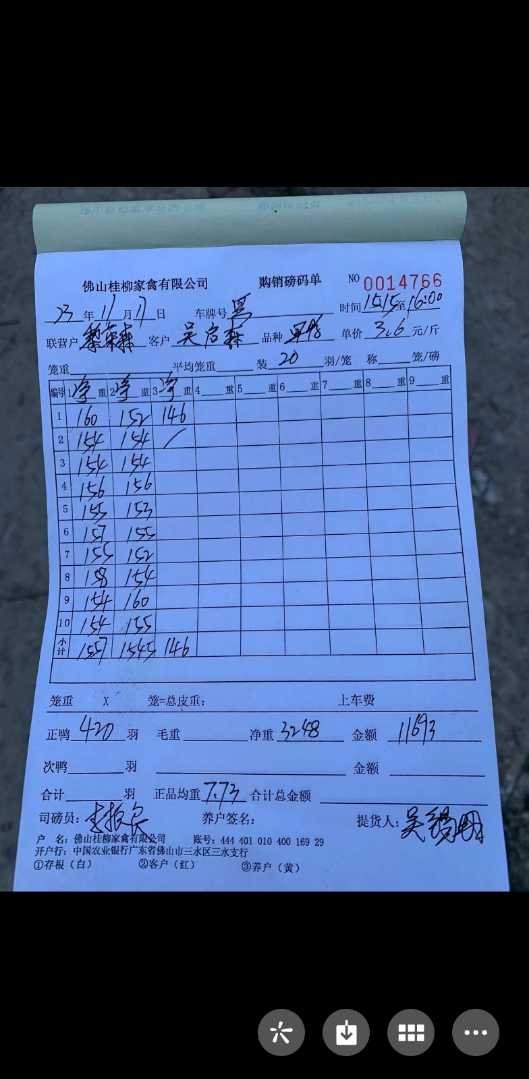 佛山桂柳家禽有限公司 购销磅码单 NO 0014766
23 年 11 月 17 日 车牌号 时间 15:15 至 16:00
联营户 客户 吴启森 品种 单价 3.6 元/斤
笼重 平均笼重 装 20 羽/笼 称 笼/磅
编号 1 净 重 2 净 重 3 净 重 4 重 5 重 6 重 7 重 8 重 9 重
1 160 152 146
2 154 154 /
3 154 154
4 156 156
5 155 153
6 157 155
7 155 152
8 158 154
9 154 160
10 154 155
小计 1557 1545 146
笼重 X 笼=总皮重: 上车费
正鸭 420 羽 毛重 净重 3248 金额 11693
次鸭 羽 金额
合计 羽 正品均重 7.73 合计总金额
司磅员: 养户签名: 提货人:
户 名: 佛山桂柳家禽有限公司 账号: 444 401 010 400 169 29
开户行: 中国农业银行广东省佛山市三水区三水支行
①存根（白） ②客户（红） ③养户（黄）